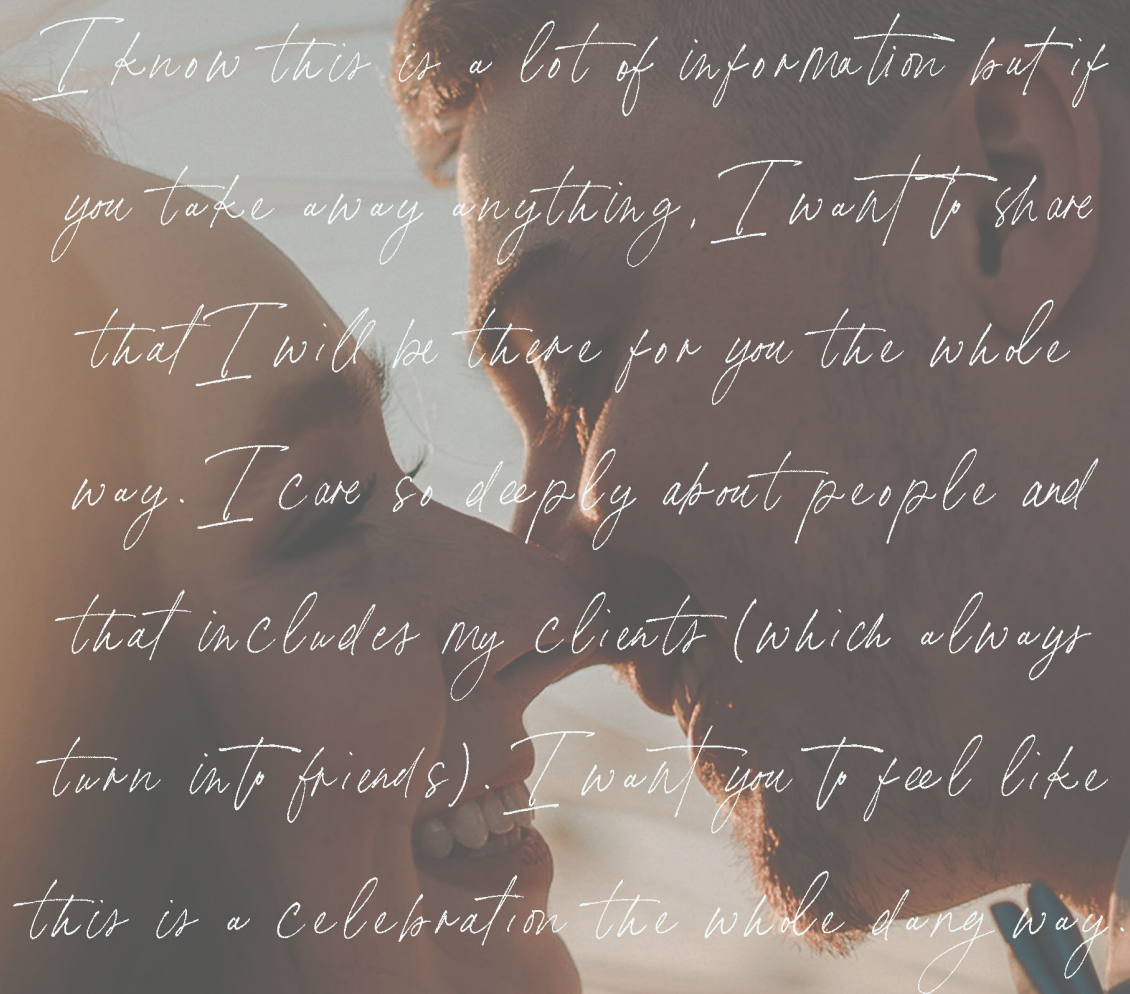 I know this is a lot of information but if
you take away anything, I want to share
that I will be there for you the whole
way. I care so deeply about people and
that includes my clients (which always
turn into friends). I want you to feel like
this is a celebration the whole dang way.